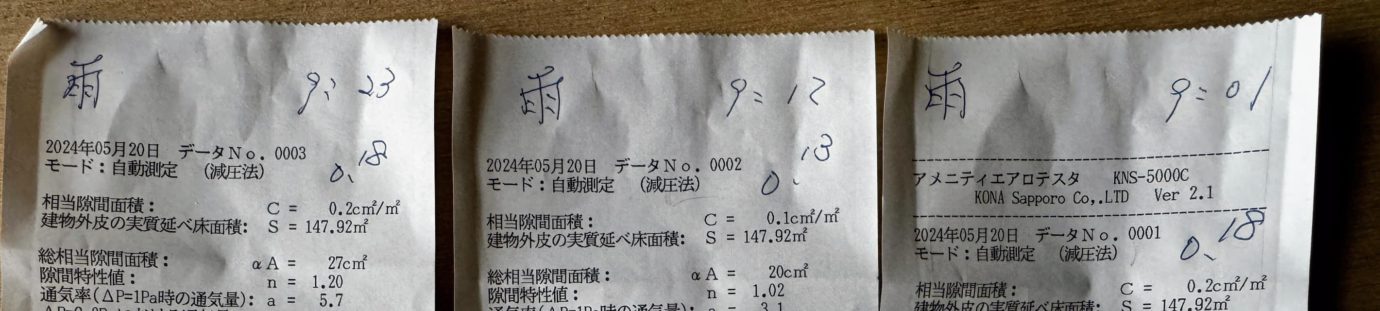 雨 9:23
2024年05月20日 データNo. 0003
モード：自動測定 (減圧法) 0.18
相当隙間面積： C = 0.2c㎡/㎡
建物外皮の実質延べ床面積： S = 147.92㎡
総相当隙間面積： αA = 27c㎡
隙間特性値： n = 1.20
通気率(ΔP=1Pa時の通気量)： a = 5.7
雨 9:12
2024年05月20日 データNo. 0002
モード：自動測定 (減圧法) 0.13
相当隙間面積： C = 0.1c㎡/㎡
建物外皮の実質延べ床面積： S = 147.92㎡
総相当隙間面積： αA = 20c㎡
隙間特性値： n = 1.02
通気率(ΔP=1Pa時の通気量)： a = 3.1
雨 9:01
アメニティエアロテスタ KNS-5000C
KONA Sapporo Co,.LTD Ver 2.1
2024年05月20日 データNo. 0001
モード：自動測定 (減圧法) 0.18
相当隙間面積： C = 0.2c㎡/㎡
建物外皮の実質延べ床面積： S = 147.92㎡